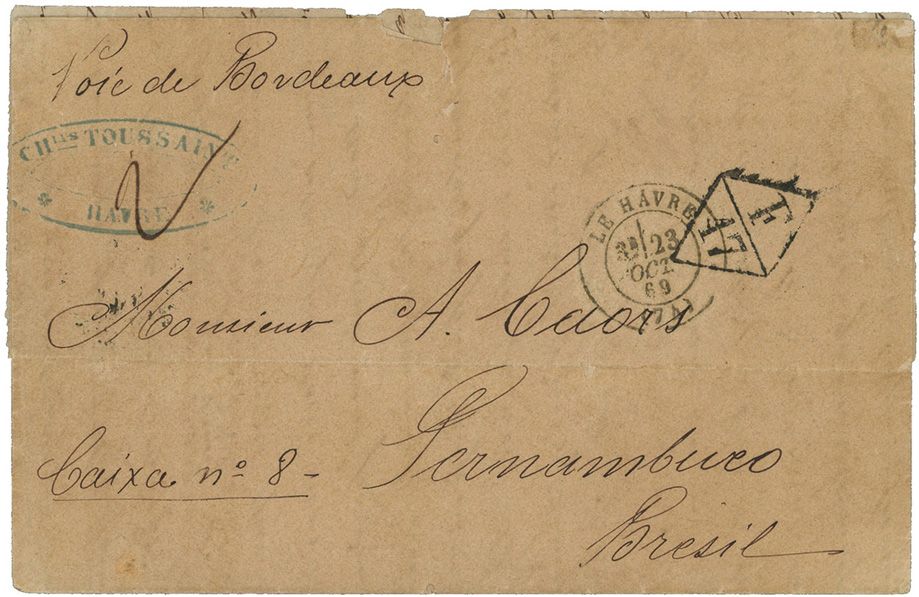 Voie de Bordeaux
CHles TOUSSAINT
HAVRE
2
LE HAVRE
23
OCT.
69
F
17
Monsieur A. Caors
Caixa no 8 -
Pernambuco
Brésil